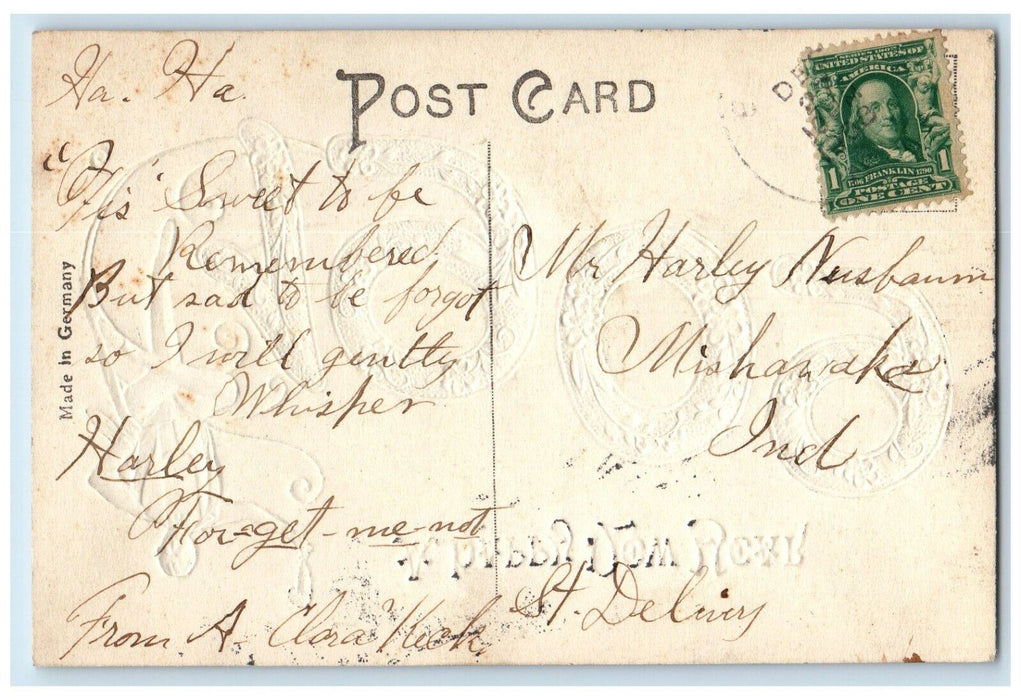 POST CARD
Ha. Ha.
"Tis' Sweet to be
Remembered,
But sad to be forgot
so I will gently
Whisper
Harley
For-get-me-not
From A. Clara Keck.
Made in Germany
Mr Harley Nusbaum
Mishawaka
Ind
St. Delivry
SERIES 1902
UNITED STATES OF
AMERICA
1706 FRANKLIN 1790
1 1
POSTAGE
ONE CENT
DE